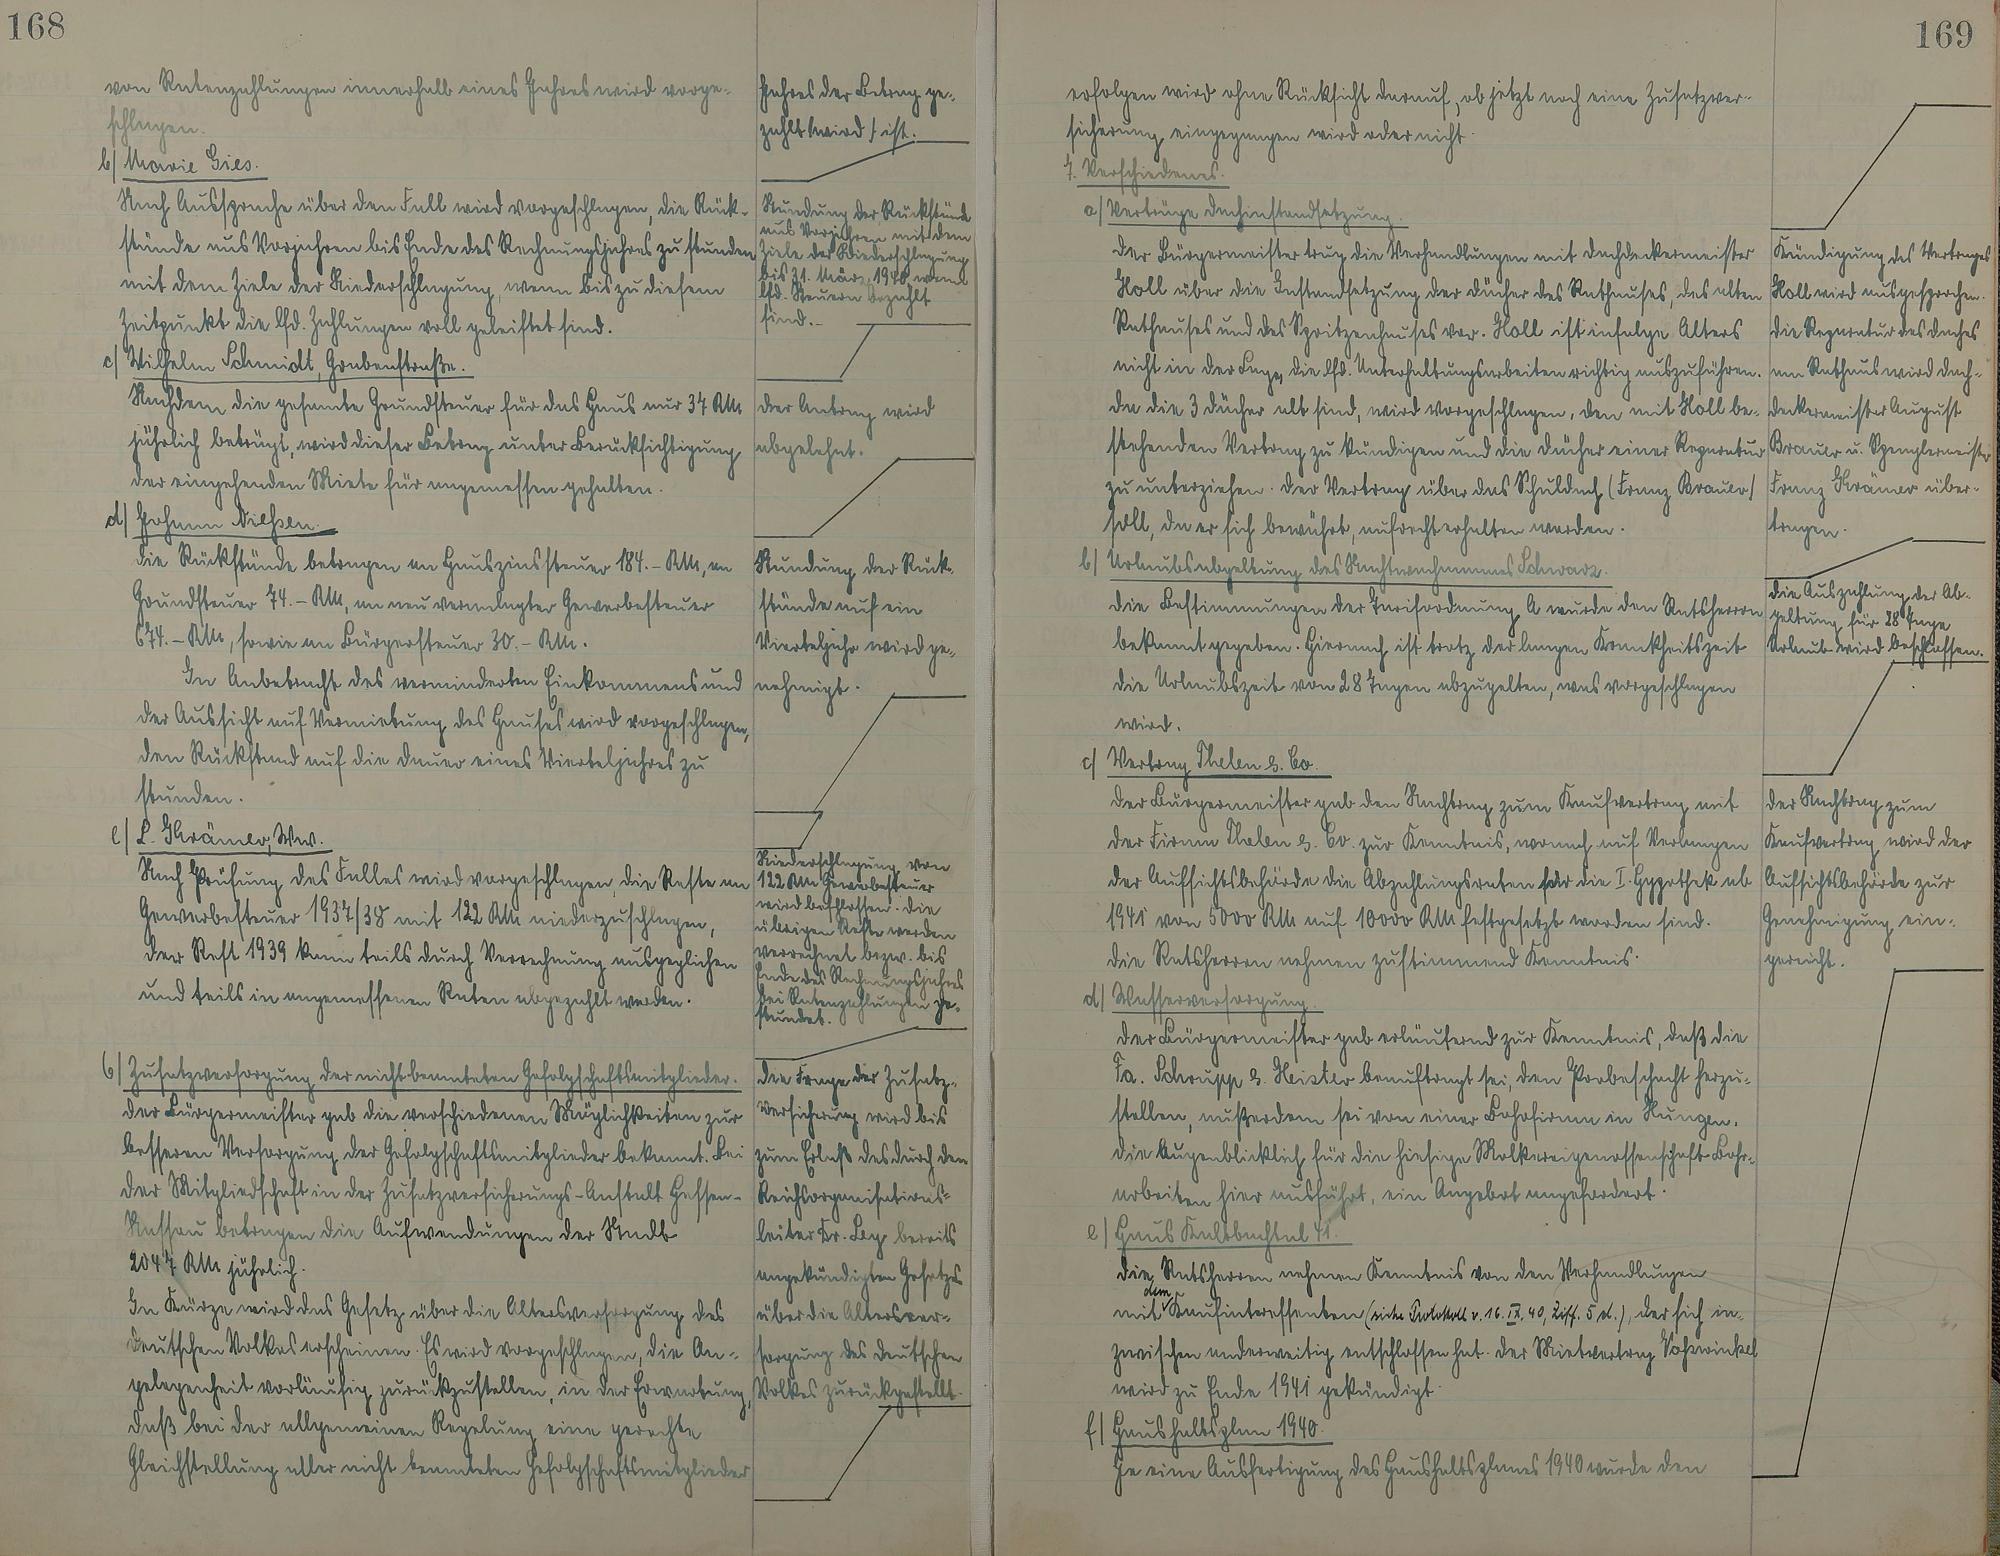 168
von Ratenzahlungen innerhalb eines Jahres wird vorge-
schlagen.
b/ Marie Gies.
Nach Aussprache über den Fall wird vorgeschlagen, die Rück-
stände aus Vorjahren bis Ende des Rechnungsjahres zu stunden
mit dem Ziele der Niederschlagung, wenn bis zu diesem
Zeitpunkt die lfd. Zahlungen voll geleistet sind.
c/ Wilhelm Schmidt, Grabenstraße.
Nachdem die gesamte Grundsteuer für das Haus nur 37 RM
jährlich beträgt, wird dieser Betrag unter Berücksichtigung
der eingehenden Miete für angemessen gehalten.
d/ Johann Nilhsen.
Die Rückstände betragen an Hauszinssteuer 184.- RM, an
Grundsteuer 74.- RM, an neu veranlagter Gewerbesteuer
674.- RM, sowie an Bürgersteuer 30.- RM.
In Anbetracht des verminderten Einkommens und
der Aussicht auf Vermietung des Hauses wird vorgeschlagen,
den Rückstand auf die Dauer eines Vierteljahres zu
stunden.
e/ L. Krämer, Ww.
Nach Prüfung des Falles wird vorgeschlagen, die Reste an
Gewerbesteuer 1937/38 mit 122 RM niederzuschlagen,
der Rest 1939 kann teils durch Verrechnung ausgeglichen
und teils in angemessenen Raten abgezahlt werden.
6/ Zusatzversorgung der nichtbeamteten Gefolgschaftsmitglieder.
Der Bürgermeister gab die verschiedenen Möglichkeiten zur
besseren Versorgung der Gefolgschaftsmitglieder bekannt. Bei
der Mitgliedschaft in der Zusatzversicherungs-Anstalt Hessen-
Nassau betragen die Aufwendungen der Stadt
2047 RM jährlich.
In Kürze wird das Gesetz über die Altersversorgung des
Deutschen Volkes erscheinen. Es wird vorgeschlagen, die An-
gelegenheit vorläufig zurückzustellen, in der Erwartung,
daß bei der allgemeinen Regelung eine gerechte
Gleichstellung aller nicht beamteten Gefolgschaftsmitglieder
Jahres der Betrag ge-
zahlt /wird/ ist.
Stundung der Rückstände
aus Vorjahren mit dem
Ziele der Niederschlagung
bis 31. März 1941, wenn
lfd. Steuern bezahlt
sind.-
Der Antrag wird
abgelehnt.
Stundung der Rück-
stände auf ein
Vierteljahr wird ge-
nehmigt.
Niederschlagung von
122 RM Gewerbesteuer
wird beschlossen. Die
übrigen Reste werden
verrechnet bezw. bis
Ende des Rechnungsjahres
bei Ratenzahlungen ge-
stundet.
Die Frage der Zusatz-
versicherung wird bis
zum Erlaß des durch den
Reichsorganisations-
leiter Dr. Ley bereits
angekündigten Gesetzes
über die Altersver-
sorgung des Deutschen
Volkes zurückgestellt.
169
erfolgen wird ohne Rücksicht darauf, ob jetzt noch eine Zusatzver-
sicherung eingegangen wird oder nicht.
7. Verschiedenes.
a/ Verträge Dachinstandsetzung.
Der Bürgermeister trug die Verhandlungen mit Dachdeckermeister
Holl über die Instandsetzung der Dächer des Rathauses, des alten
Rathauses und des Spritzenhauses vor. Holl ist infolge Alters
nicht in der Lage, die lfd. Unterhaltungsarbeiten richtig auszuführen.
Da die 3 Dächer alt sind, wird vorgeschlagen, den mit Holl be-
stehenden Vertrag zu kündigen und die Dächer einer Reparatur
zu unterziehen. Der Vertrag über das Schuldach (Franz Brauer/
soll, da er sich bewährt, aufrecht erhalten werden.
b/ Urlaubsabgeltung des Nachtwachmannes Schwarz.
Die Bestimmungen der Tarifordnung A wurde den Ratsherren
bekannt gegeben. Hiernach ist trotz der langen Krankheitszeit
die Urlaubszeit von 28 Tagen abzugelten, was vorgeschlagen
wird.
c/ Vertrag Thelen & Co.
Der Bürgermeister gab den Nachtrag zum Kaufvertrag mit
der Firma Thelen & Co. zur Kenntnis, wonach auf Verlangen
der Aufsichtsbehörde die Abzahlungsraten für die I. Hypothek ab
1941 von 5000 RM auf 10000 RM festgesetzt worden sind.
Die Ratsherren nehmen zustimmend Kenntnis.
d/ Wasserversorgung.
Der Bürgermeister gab erläuternd zur Kenntnis, daß die
Fa. Schrupp & Heister beauftragt sei, den Probeschacht herzu-
stellen, außerdem sei von einer Bohrfirma in Hungen,
die augenblicklich für die hiesige Molkereigenossenschaft Bohr-
arbeiten hier ausführt, ein Angebot angefordert.
e/ Haus Kaltbachtal 41.
Die Ratsherren nehmen Kenntnis von den Verhandlungen
dem
mit Kaufinteressenten (siehe Protokoll v. 16. IX. 40, Ziff. 5 d.), der sich in-
zwischen anderweitig entschlossen hat. Der Mietvertrag Vohwinkel
wird zu Ende 1941 gekündigt.
f/ Haushaltsplan 1940.
Je eine Ausfertigung des Haushaltsplanes 1940 wurde den
Kündigung des Vertrages
Holl wird ausgesprochen.
Die Reparatur des Daches
am Rathaus wird Dach-
deckermeister August
Brauer u. Spenglermeister
Franz Krämer über-
tragen.
Die Auszahlung der Ab-
geltung für 28 Tage
Urlaub wird beschlossen.
Der Nachtrag zum
Kaufvertrag wird der
Aufsichtsbehörde zur
Genehmigung ein-
gereicht.